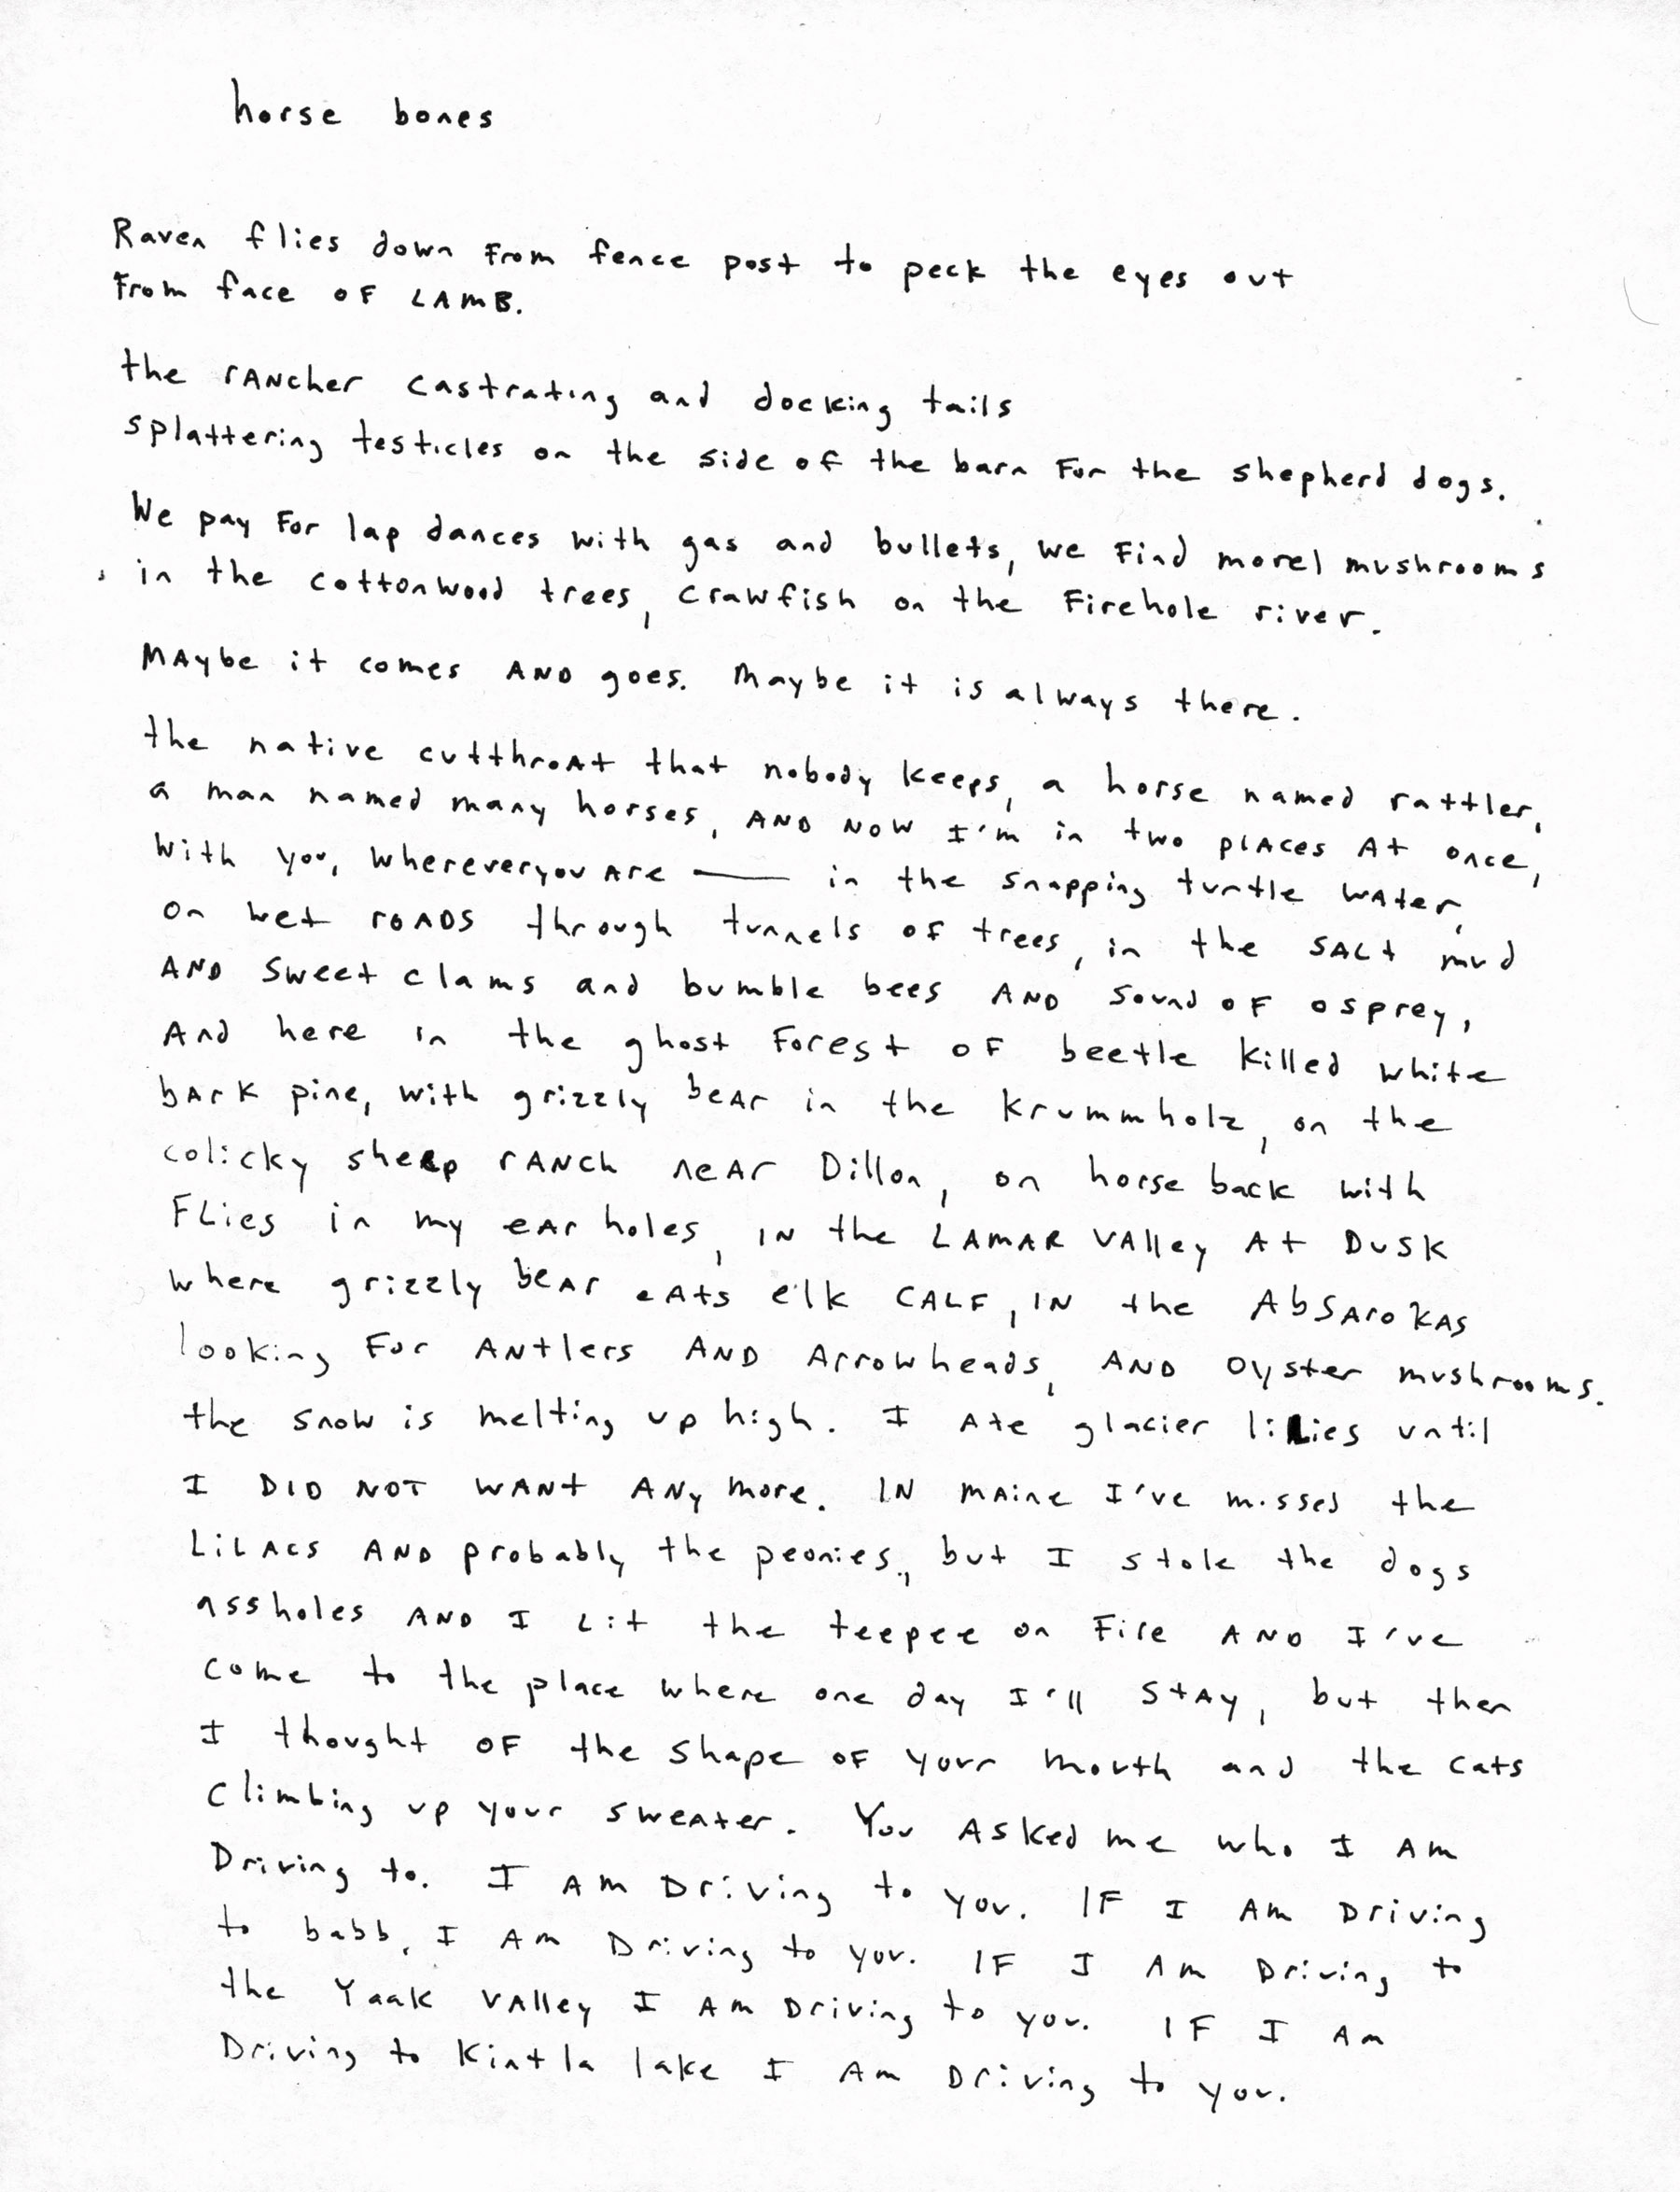 horse bones
Raven flies down From fence post to peck the eyes out
From face OF LAMB.
the rANcher castrating and docking tails
splattering testicles on the side of the barn For the shepherd dogs.
We pay For lap dances with gas and bullets, we Find morel mushrooms
in the cottonwood trees, crawfish on the Firehole river.
MAybe it comes AND goes. Maybe it is always there.
the native cutthroAt that nobody keeps, a horse named rattler,
a man named many horses, AND NOW I'm in two plAces At once,
With you, Whereveryou Are — in the snapping turtle WAter,
On wet roADS through tunnels of trees, in the SALt mud
AND Sweet clams and bumble bees AND Sound OF osprey,
And here in the ghost Forest OF beetle killed white
bArk pine, with grizzly beAr in the Krummholz, on the
colicky sheep rANch neAr Dillon, on horse back with
FLies in my eAr holes, IN the LAMAR VAlley At DUSK
Where grizzly beAr eAts elk CALF, IN the AbSAroKAs
looking For ANtlers AND Arrowheads, AND Oyster mushrooms.
the snow is melting up high. I Ate glacier liLies until
I DID NOT WANt ANy more. IN MAine I've missed the
LiLAcs AND probably the peonies, but I stole the dogs
assholes AND I Lit the teepee on Fire AND I've
come to the place where one day I'll StAy, but then
I thought OF the shape OF your mouth and the cats
climbing up your sweAter. You ASked me who I AM
Driving to. I AM Driving to you. IF I AM Driving
to babb, I AM Driving to you. IF I AM Driving to
the Yaak VAlley I AM Driving to you. IF I AM
Driving to Kintla lake I AM Driving to you.